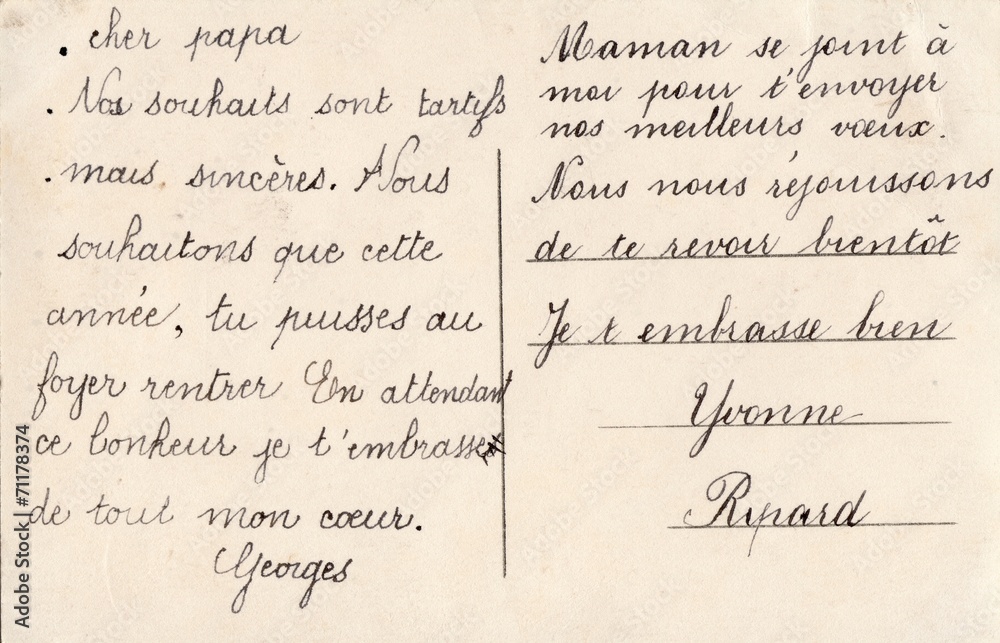 . cher papa
. Nos souhaits sont tartifs
. mais sincères. Nous
souhaitons que cette
année, tu puisses au
foyer rentrer En attendant
ce bonheur je t'embrasse
de tout mon cœur.
Georges
Maman se joint à
moi pour t'envoyer
nos meilleurs vœux.
Nous nous réjouissons
de te revoir bientôt
Je t embrasse bien
Yvonne
Ripard
Adobe Stock | #71178374